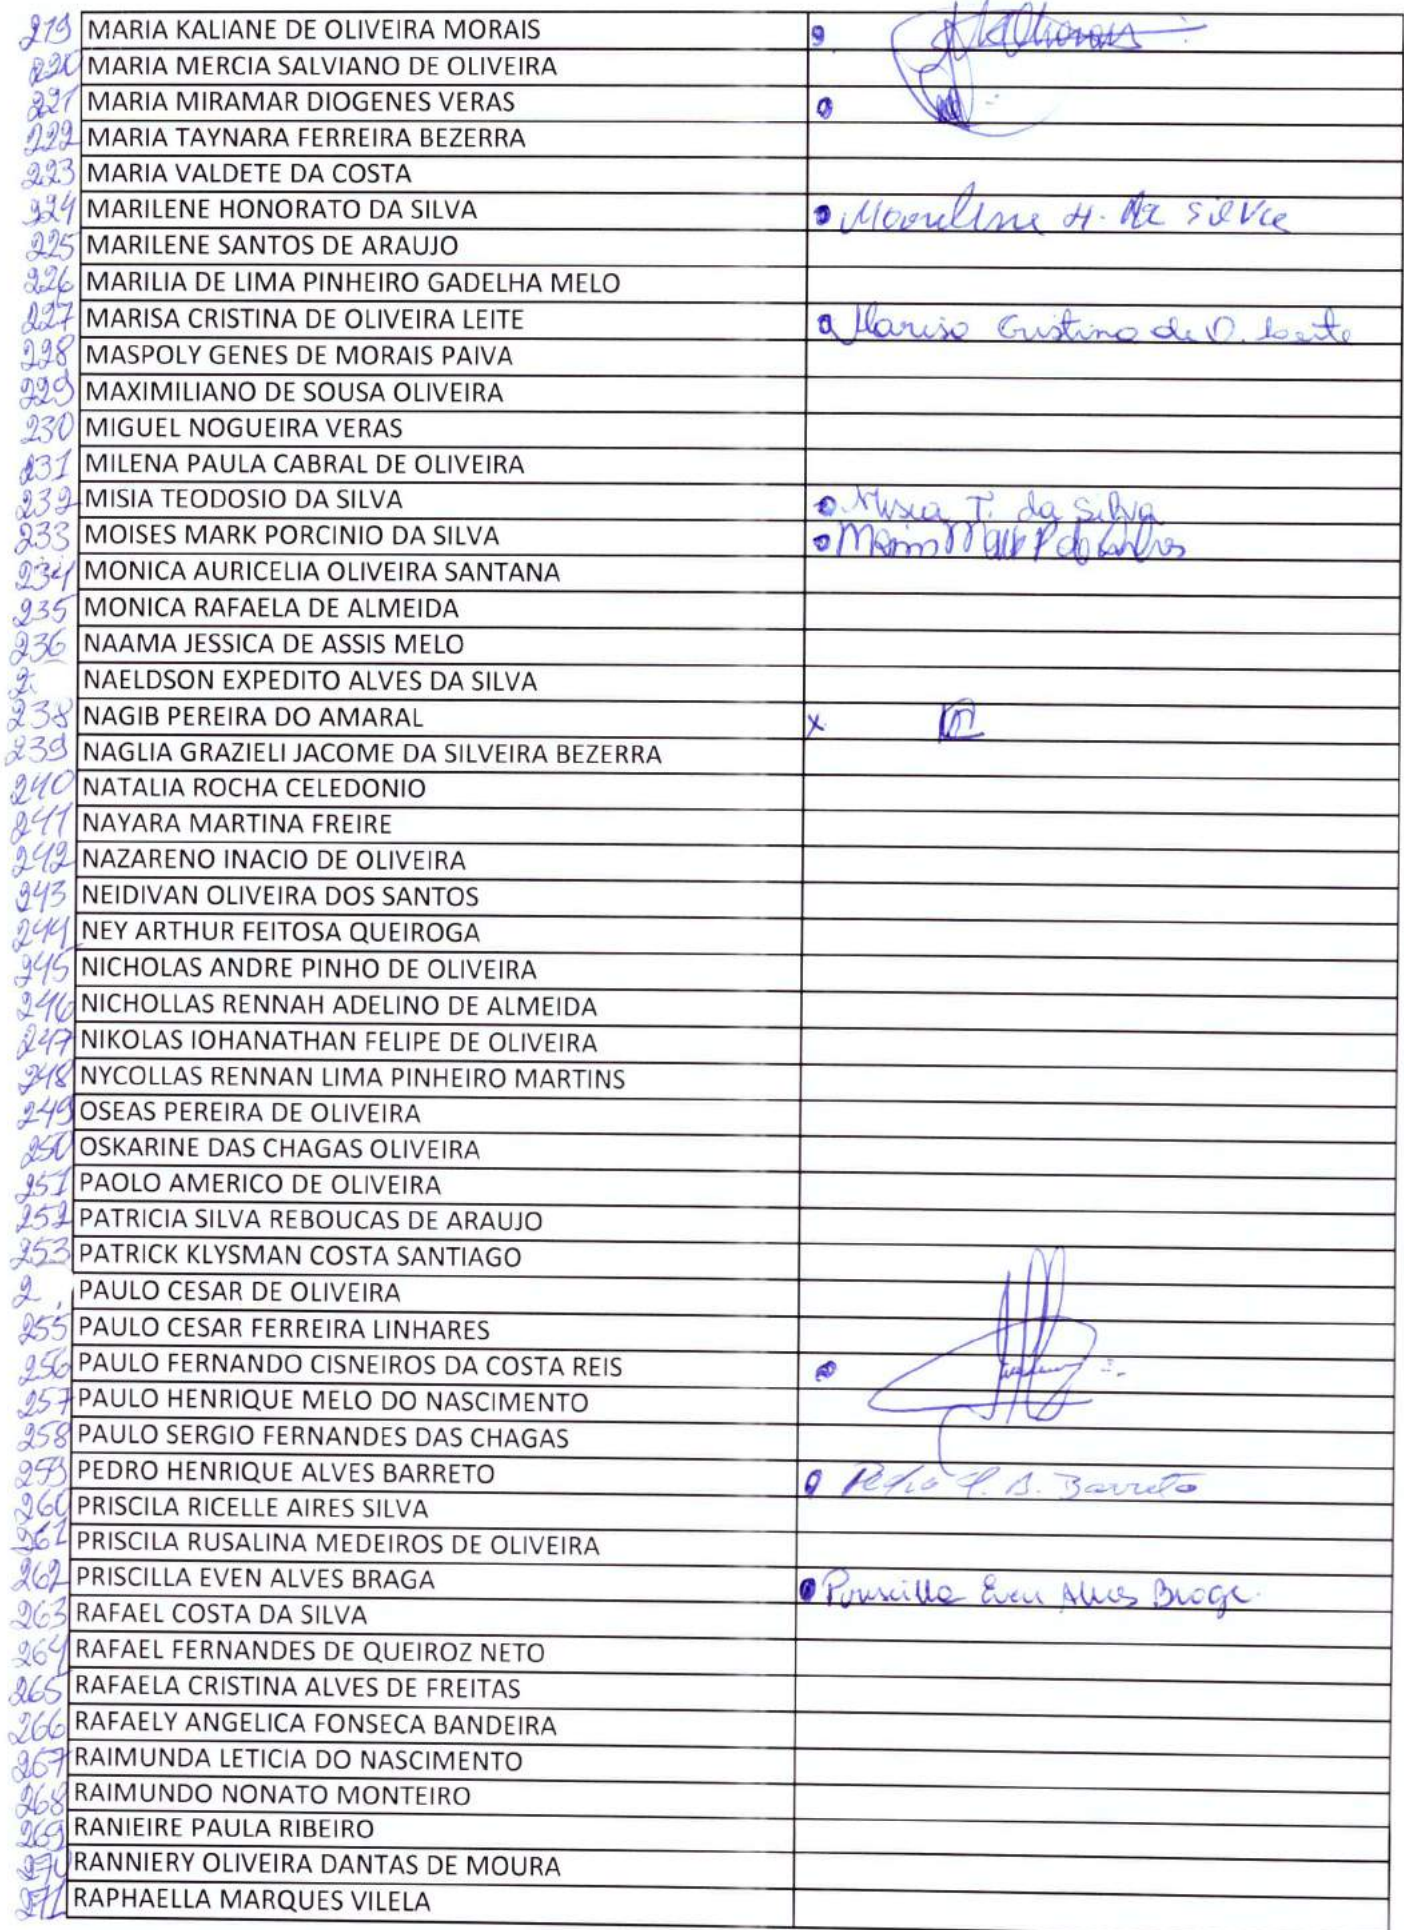 219 MARIA KALIANE DE OLIVEIRA MORAIS
220 MARIA MERCIA SALVIANO DE OLIVEIRA
221 MARIA MIRAMAR DIOGENES VERAS
222 MARIA TAYNARA FERREIRA BEZERRA
223 MARIA VALDETE DA COSTA
224 MARILENE HONORATO DA SILVA Marilene H. da Silva
225 MARILENE SANTOS DE ARAUJO
226 MARILIA DE LIMA PINHEIRO GADELHA MELO
227 MARISA CRISTINA DE OLIVEIRA LEITE Marisa Cristina de O. Leite
228 MASPOLY GENES DE MORAIS PAIVA
229 MAXIMILIANO DE SOUSA OLIVEIRA
230 MIGUEL NOGUEIRA VERAS
231 MILENA PAULA CABRAL DE OLIVEIRA
232 MISIA TEODOSIO DA SILVA Misia T. da Silva
233 MOISES MARK PORCINIO DA SILVA
234 MONICA AURICELIA OLIVEIRA SANTANA
235 MONICA RAFAELA DE ALMEIDA
236 NAAMA JESSICA DE ASSIS MELO
2 NAELDSON EXPEDITO ALVES DA SILVA
238 NAGIB PEREIRA DO AMARAL x
239 NAGLIA GRAZIELI JACOME DA SILVEIRA BEZERRA
240 NATALIA ROCHA CELEDONIO
241 NAYARA MARTINA FREIRE
242 NAZARENO INACIO DE OLIVEIRA
243 NEIDIVAN OLIVEIRA DOS SANTOS
244 NEY ARTHUR FEITOSA QUEIROGA
245 NICHOLAS ANDRE PINHO DE OLIVEIRA
246 NICHOLLAS RENNAH ADELINO DE ALMEIDA
247 NIKOLAS IOHANATHAN FELIPE DE OLIVEIRA
248 NYCOLLAS RENNAN LIMA PINHEIRO MARTINS
249 OSEAS PEREIRA DE OLIVEIRA
250 OSKARINE DAS CHAGAS OLIVEIRA
251 PAOLO AMERICO DE OLIVEIRA
252 PATRICIA SILVA REBOUCAS DE ARAUJO
253 PATRICK KLYSMAN COSTA SANTIAGO
2 PAULO CESAR DE OLIVEIRA
255 PAULO CESAR FERREIRA LINHARES
256 PAULO FERNANDO CISNEIROS DA COSTA REIS
257 PAULO HENRIQUE MELO DO NASCIMENTO
258 PAULO SERGIO FERNANDES DAS CHAGAS
259 PEDRO HENRIQUE ALVES BARRETO Pedro H. A. Barreto
260 PRISCILA RICELLE AIRES SILVA
261 PRISCILA RUSALINA MEDEIROS DE OLIVEIRA
262 PRISCILLA EVEN ALVES BRAGA Priscilla Even Alves Braga
263 RAFAEL COSTA DA SILVA
264 RAFAEL FERNANDES DE QUEIROZ NETO
265 RAFAELA CRISTINA ALVES DE FREITAS
266 RAFAELY ANGELICA FONSECA BANDEIRA
267 RAIMUNDA LETICIA DO NASCIMENTO
268 RAIMUNDO NONATO MONTEIRO
269 RANIEIRE PAULA RIBEIRO
270 RANNIERY OLIVEIRA DANTAS DE MOURA
271 RAPHAELLA MARQUES VILELA